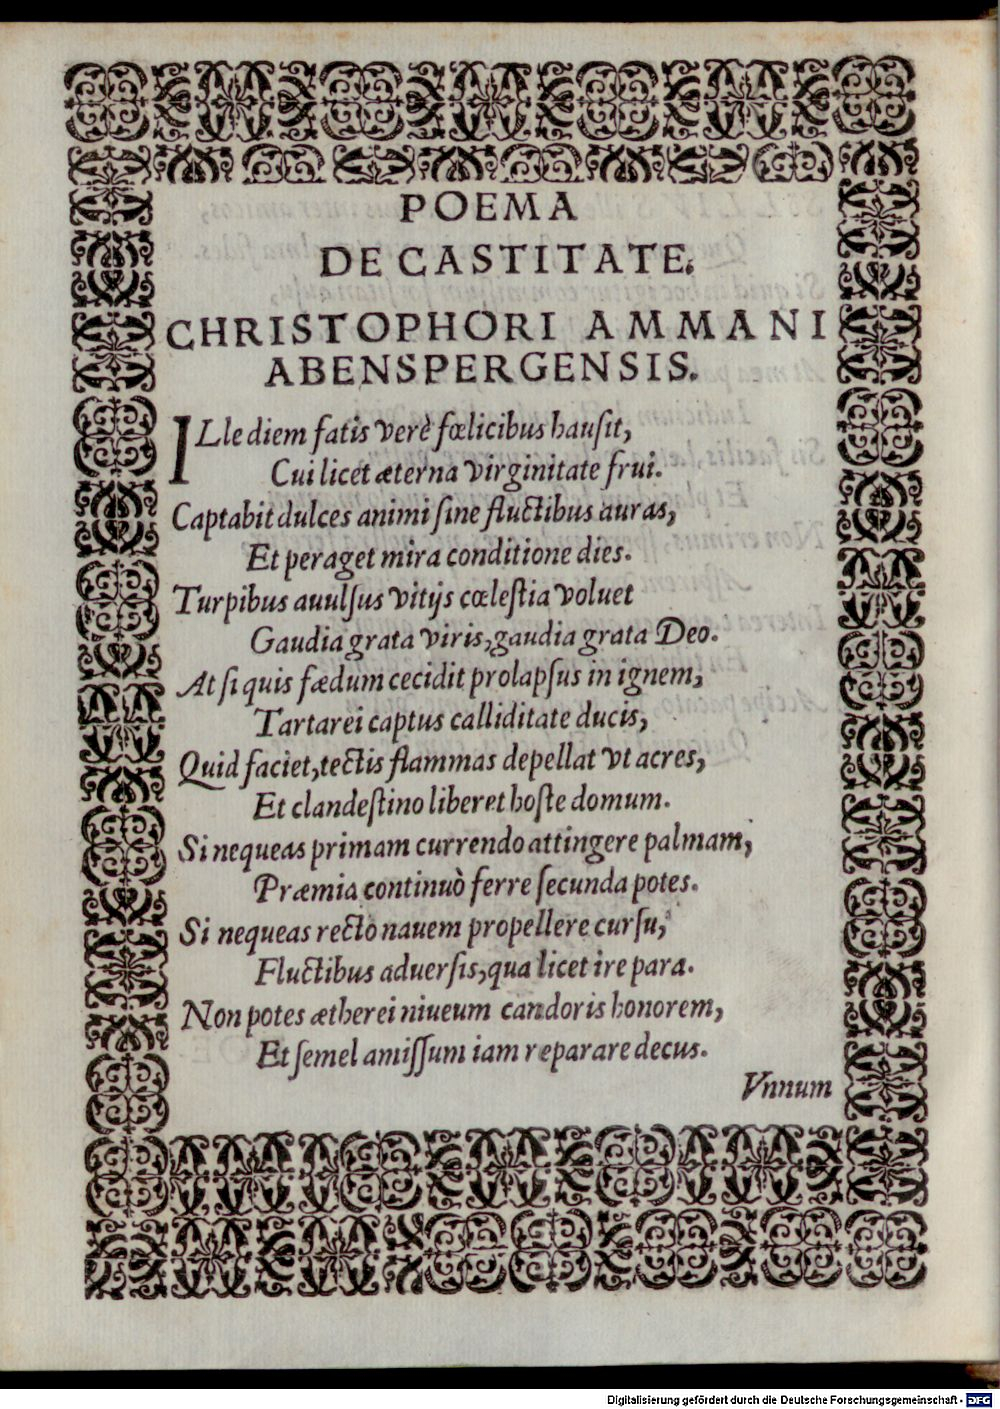 POEMA
DE CASTITATE.
CHRISTOPHORI AMMANI
ABENSPERGENSIS.
ILle diem fatis verè fœlicibus hauſit,
Cui licet æterna virginitate frui.
Captabit dulces animi ſine fluctibus auras,
Et peraget mira conditione dies.
Turpibus auulſus vitijs cœleſtia voluet
Gaudia grata viris, gaudia grata Deo.
At ſi quis fædum cecidit prolapſus in ignem,
Tartarei captus calliditate ducis,
Quid faciet, tectis flammas depellat vt acres,
Et clandeſtino liberet hoſte domum.
Si nequeas primam currendo attingere palmam,
Præmia continuò ferre ſecunda potes.
Si nequeas recto nauem propellere curſu,
Fluctibus aduerſis, qua licet ire para.
Non potes ætherei niueum candoris honorem,
Et ſemel amiſſum iam reparare decus.
Vnnum
Digitalisierung gefördert durch die Deutsche Forschungsgemeinschaft - DFG